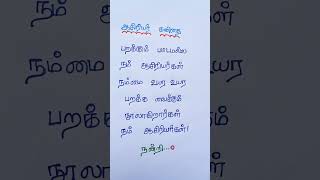 ஆசிரியர் கவிதை
பறக்கும் பாடமல்ல
நம் ஆசிரியர்கள்
நம்மை உயர உயர
பறக்க வைக்கும்
நூலாகிறார்கள்
நம் ஆசிரியர்கள்!
நன்றி...